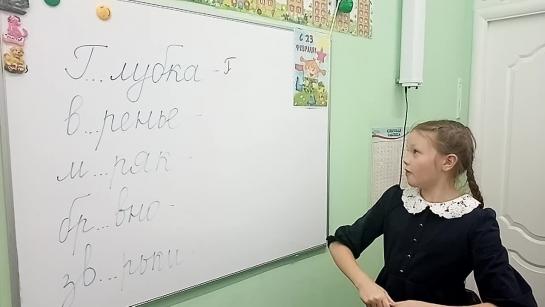 С 23
ФЕВРАЛЯ
Г...лубка - г
в...ренье -
м...ряк -
бр...вно -
зв...рьки -